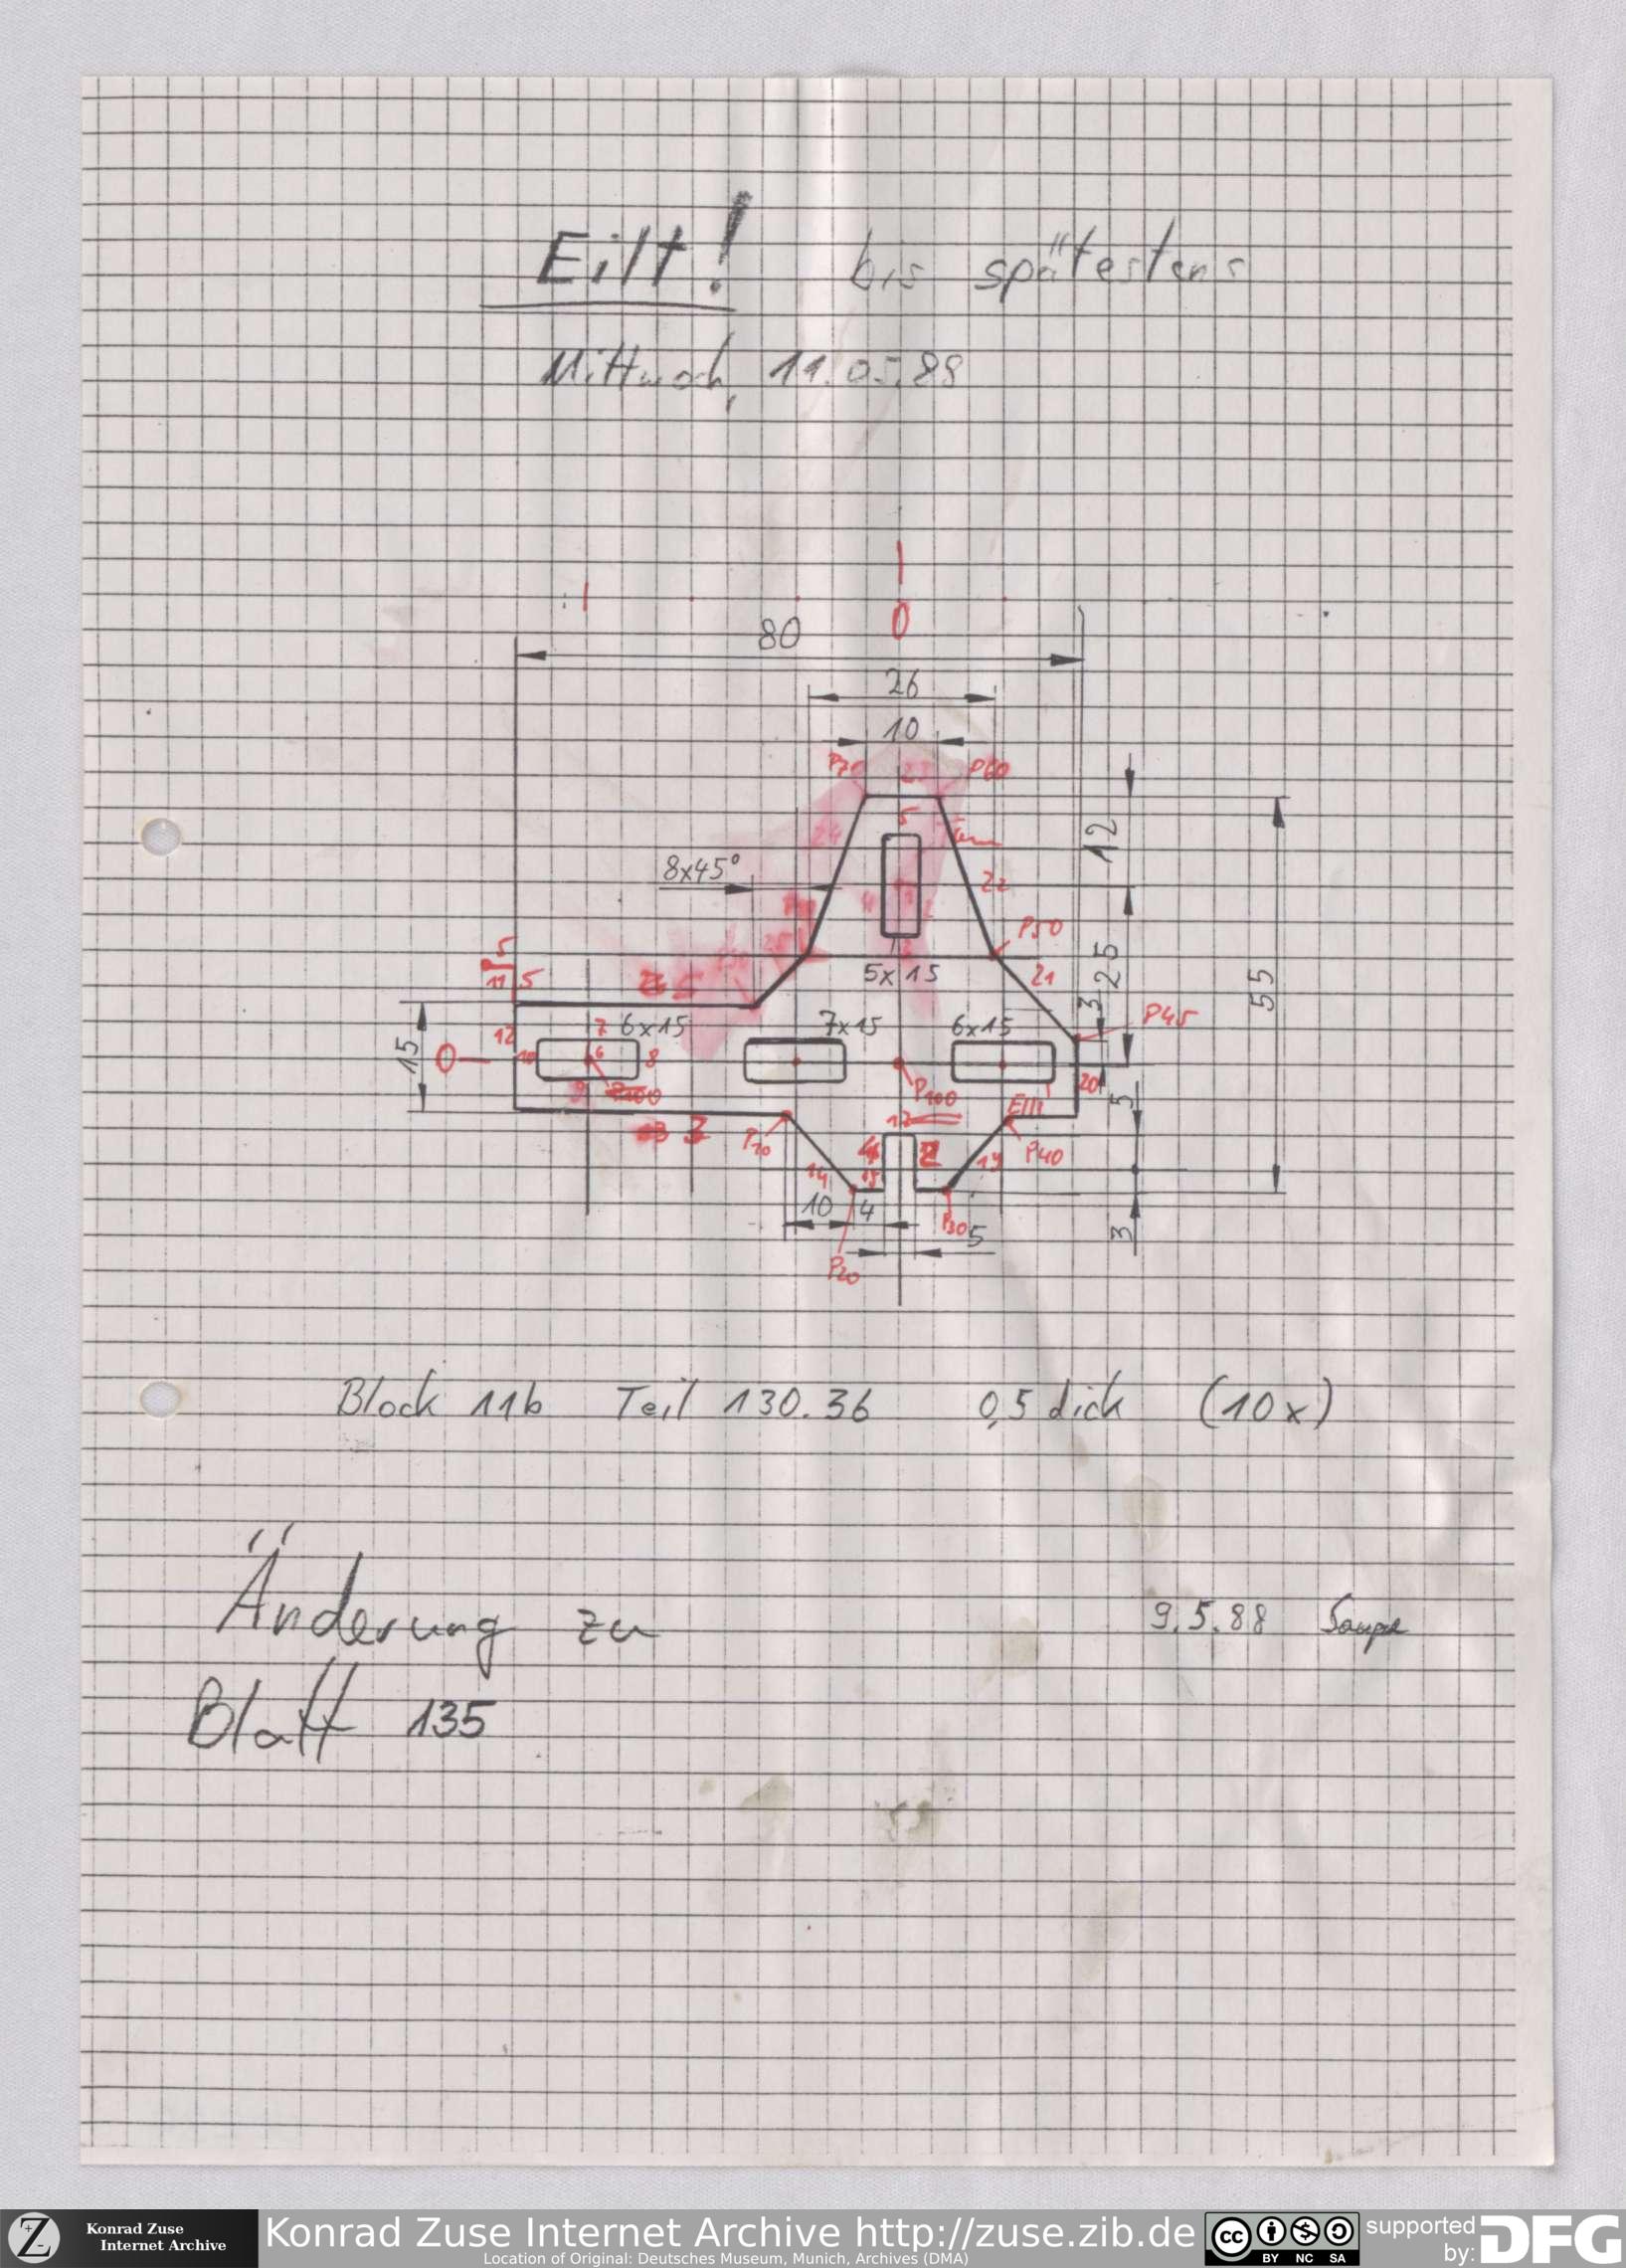 Eilt! bis spätestens
Mittwoch, 11.05.88
0
80
26
10
P70 23 P60
5
24
12
22
8x45°
P50
5
5x15
21
25
3
55
11 5
P45
12 7 6x15 7x15 6x15
15
0
10 6 8
20
9
P100
5
17
P10
P40
14
19
10 4
P30
5
3
P20
Block 11b Teil 130.36 0,5 dick (10x)
Änderung zu
9.5.88 Saupe
Blatt 135
Konrad Zuse
Internet Archive
Konrad Zuse Internet Archive http://zuse.zib.de
Location of Original: Deutsches Museum, Munich, Archives (DMA)
cc
BY NC SA
supported
by: DFG